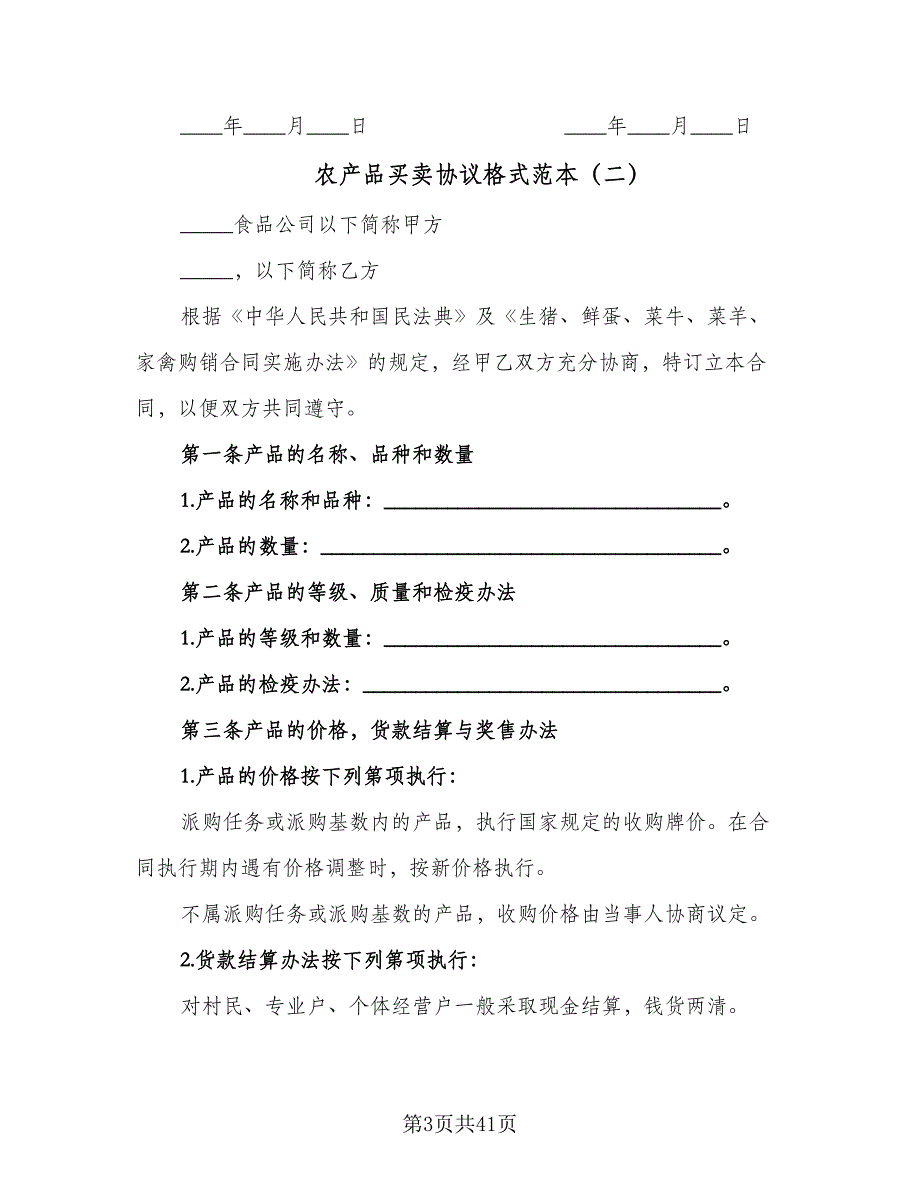 ____年____月____日 ____年____月____日
农产品买卖协议格式范本（二）
_____食品公司以下简称甲方
_____，以下简称乙方
根据《中华人民共和国民法典》及《生猪、鲜蛋、菜牛、菜羊、
家禽购销合同实施办法》的规定，经甲乙双方充分协商，特订立本合
同，以便双方共同遵守。
第一条产品的名称、品种和数量
1.产品的名称和品种：________________________________。
2.产品的数量：______________________________________。
第二条产品的等级、质量和检疫办法
1.产品的等级和数量：________________________________。
2.产品的检疫办法：__________________________________。
第三条产品的价格，货款结算与奖售办法
1.产品的价格按下列第项执行：
派购任务或派购基数内的产品，执行国家规定的收购牌价。在合
同执行期内遇有价格调整时，按新价格执行。
不属派购任务或派购基数的产品，收购价格由当事人协商议定。
2.货款结算办法按下列第项执行：
对村民、专业户、个体经营户一般采取现金结算，钱货两清。
第3页共41页